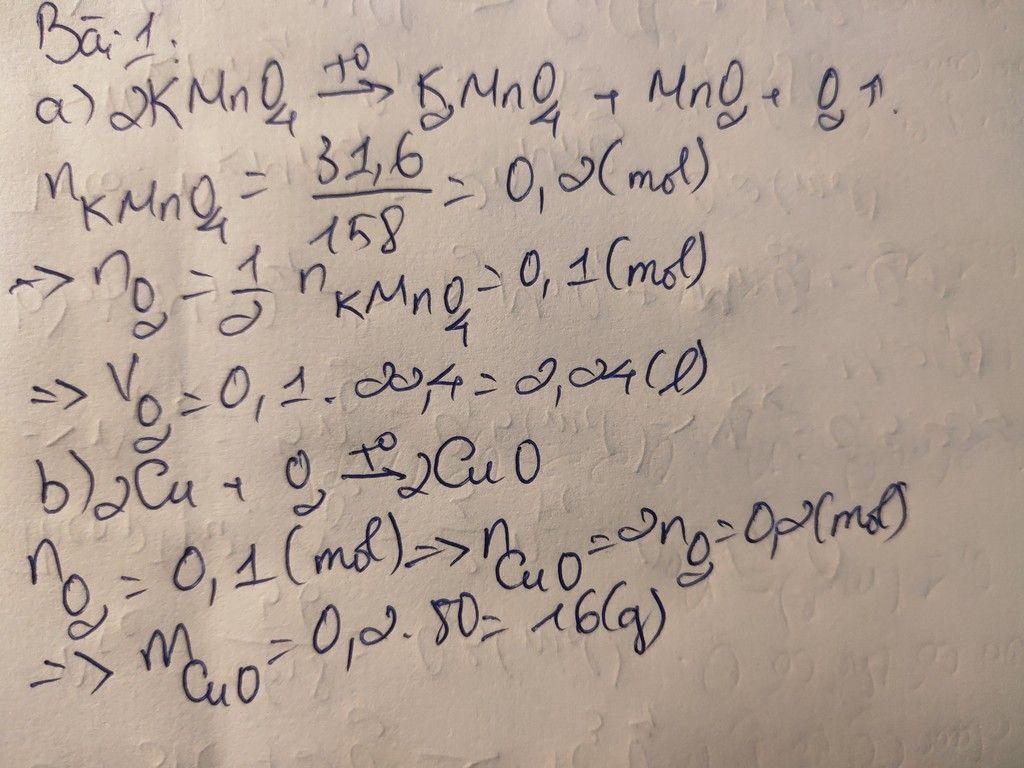 Bài 1:
a) 2KMnO₄ →(t⁰) K₂MnO₄ + MnO₂ + O₂ ↑.
n_KMnO₄ = 31,6/158 = 0,2 (mol)
=> n_O₂ = 1/2 n_KMnO₄ = 0,1 (mol)
=> V_O₂ = 0,1 . 22,4 = 2,24 (l)
b) 2Cu + O₂ →(t⁰) 2CuO
n_O₂ = 0,1 (mol) => n_CuO = 2n_O₂ = 0,2 (mol)
=> m_CuO = 0,2 . 80 = 16 (g)